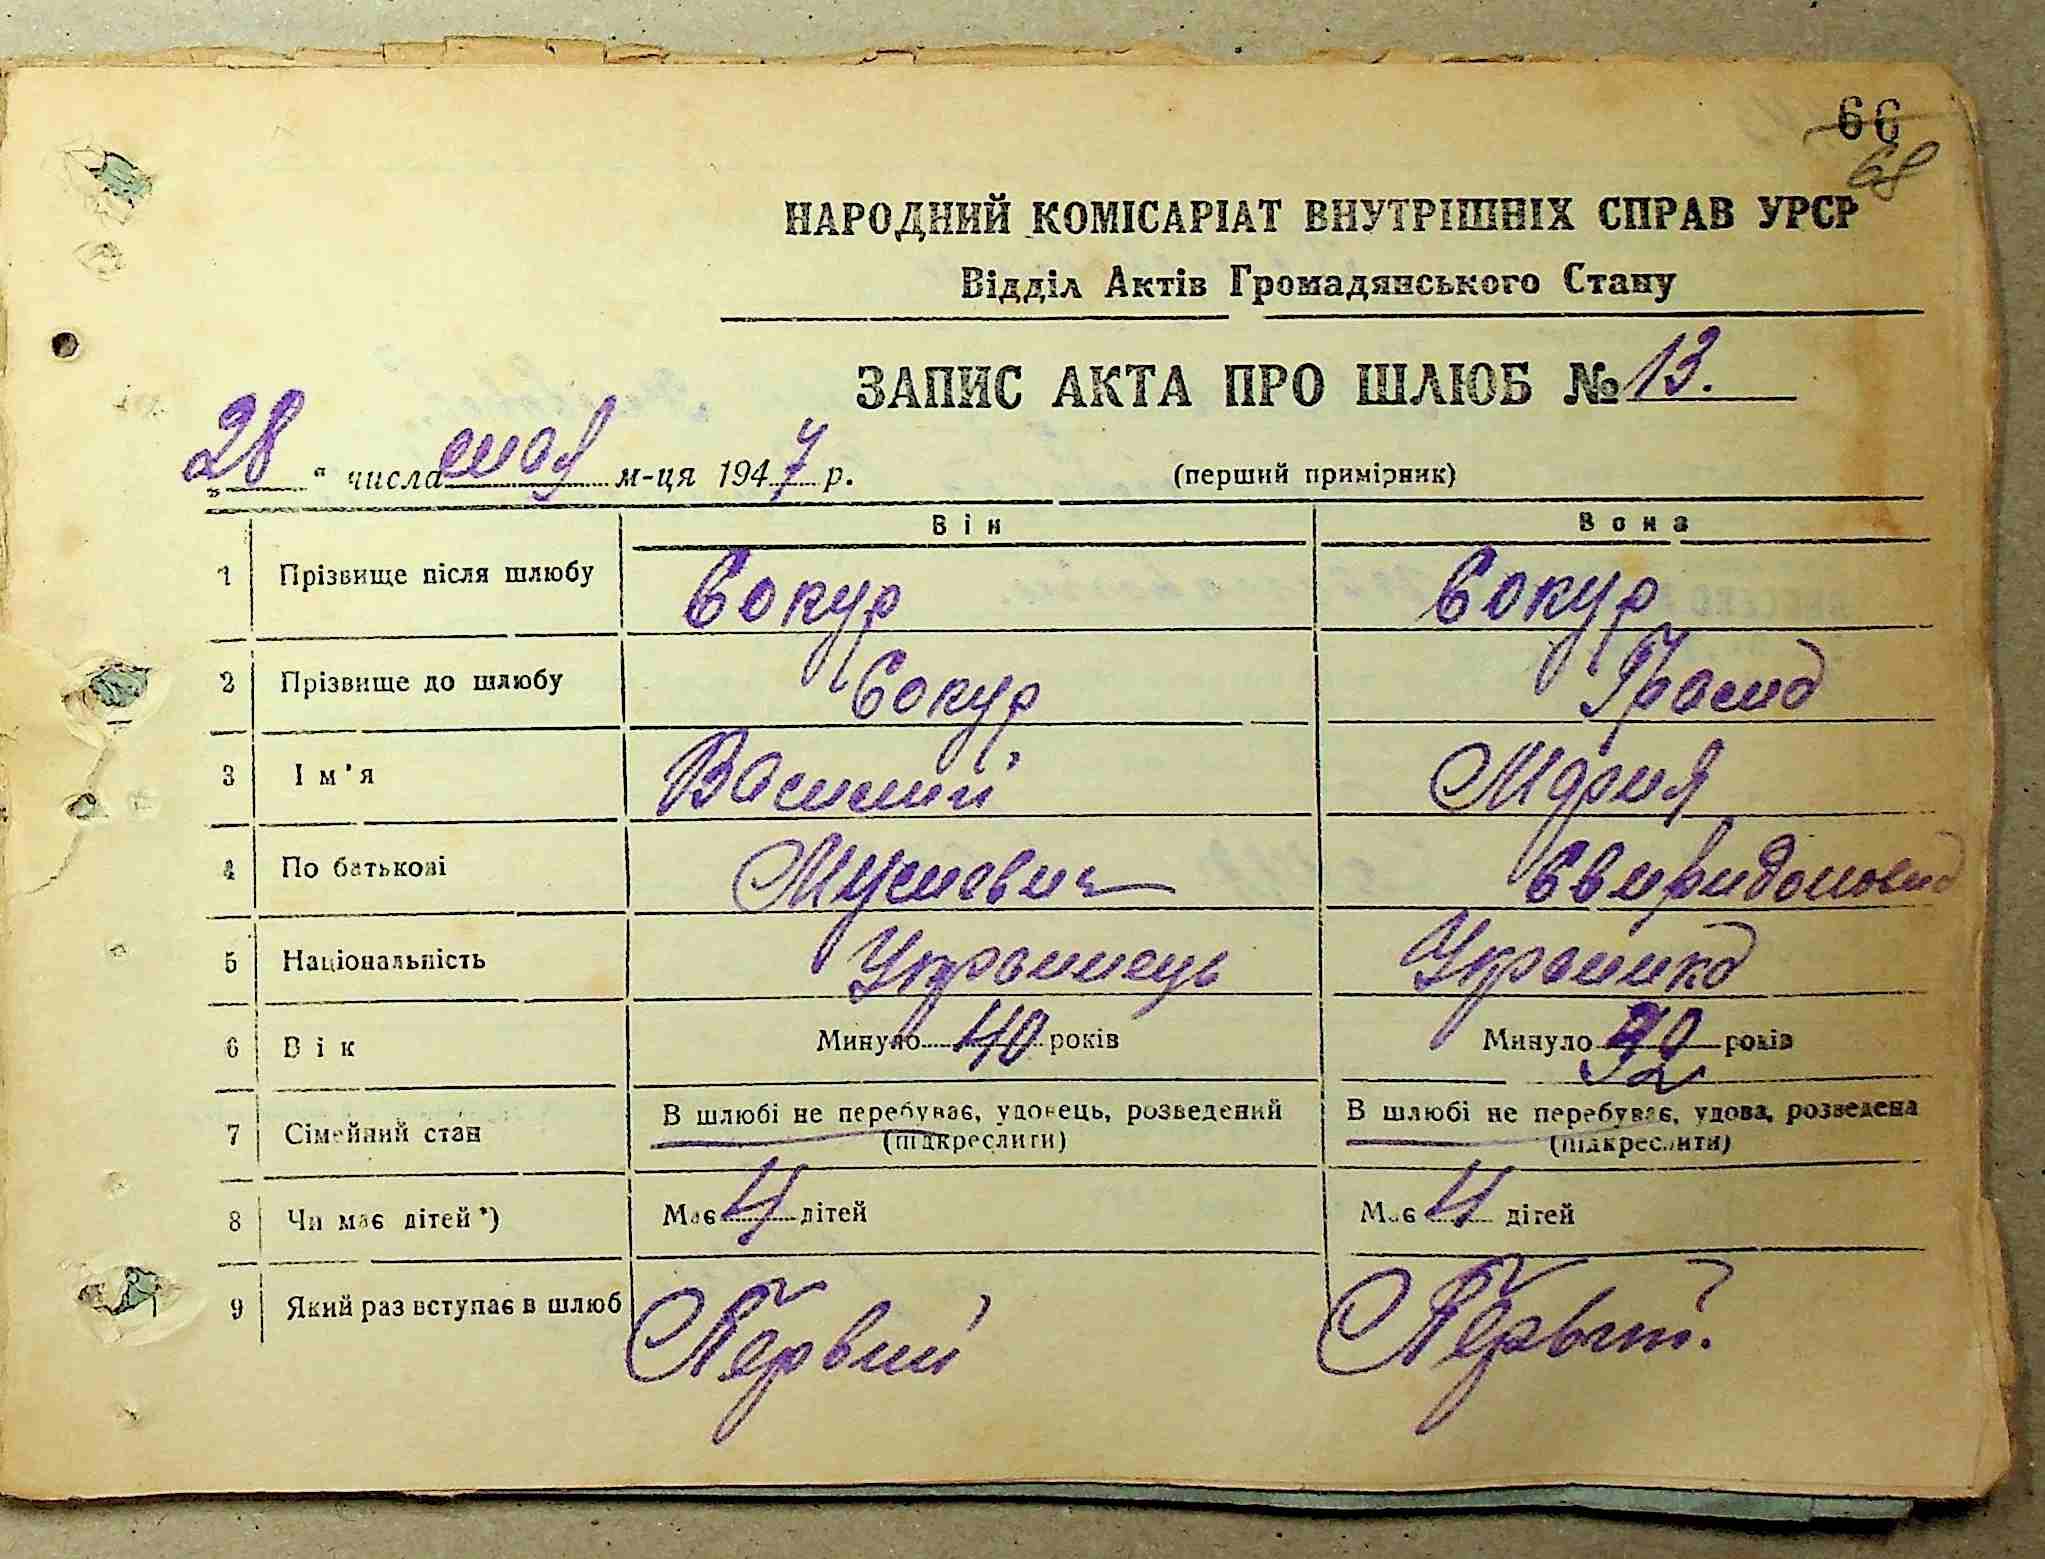 66
68
НАРОДНИЙ КОМІСАРІАТ ВНУТРІШНІХ СПРАВ УРСР
Відділ Актів Громадянського Стану
ЗАПИС АКТА ПРО ШЛЮБ № 13.
„28“ числа мая м-ця 1947 р. (перший примірник)
Він Вона
1 Прізвище після шлюбу Сокур Сокур
2 Прізвище до шлюбу Сокур
3 Ім'я Василий Мария
4 По батькові Мусиевич Свиридоновна
5 Національність Украинець Украинка
6 Вік Минуло 40 років Минуло 32 років
7 Сімейний стан В шлюбі не перебуває, удовець, розведений В шлюбі не перебуває, удова, розведена
(підкреслити) (підкреслити)
8 Чи має дітей*) Має 4 дітей Має 4 дітей
9 Який раз вступає в шлюб Первий Первый.